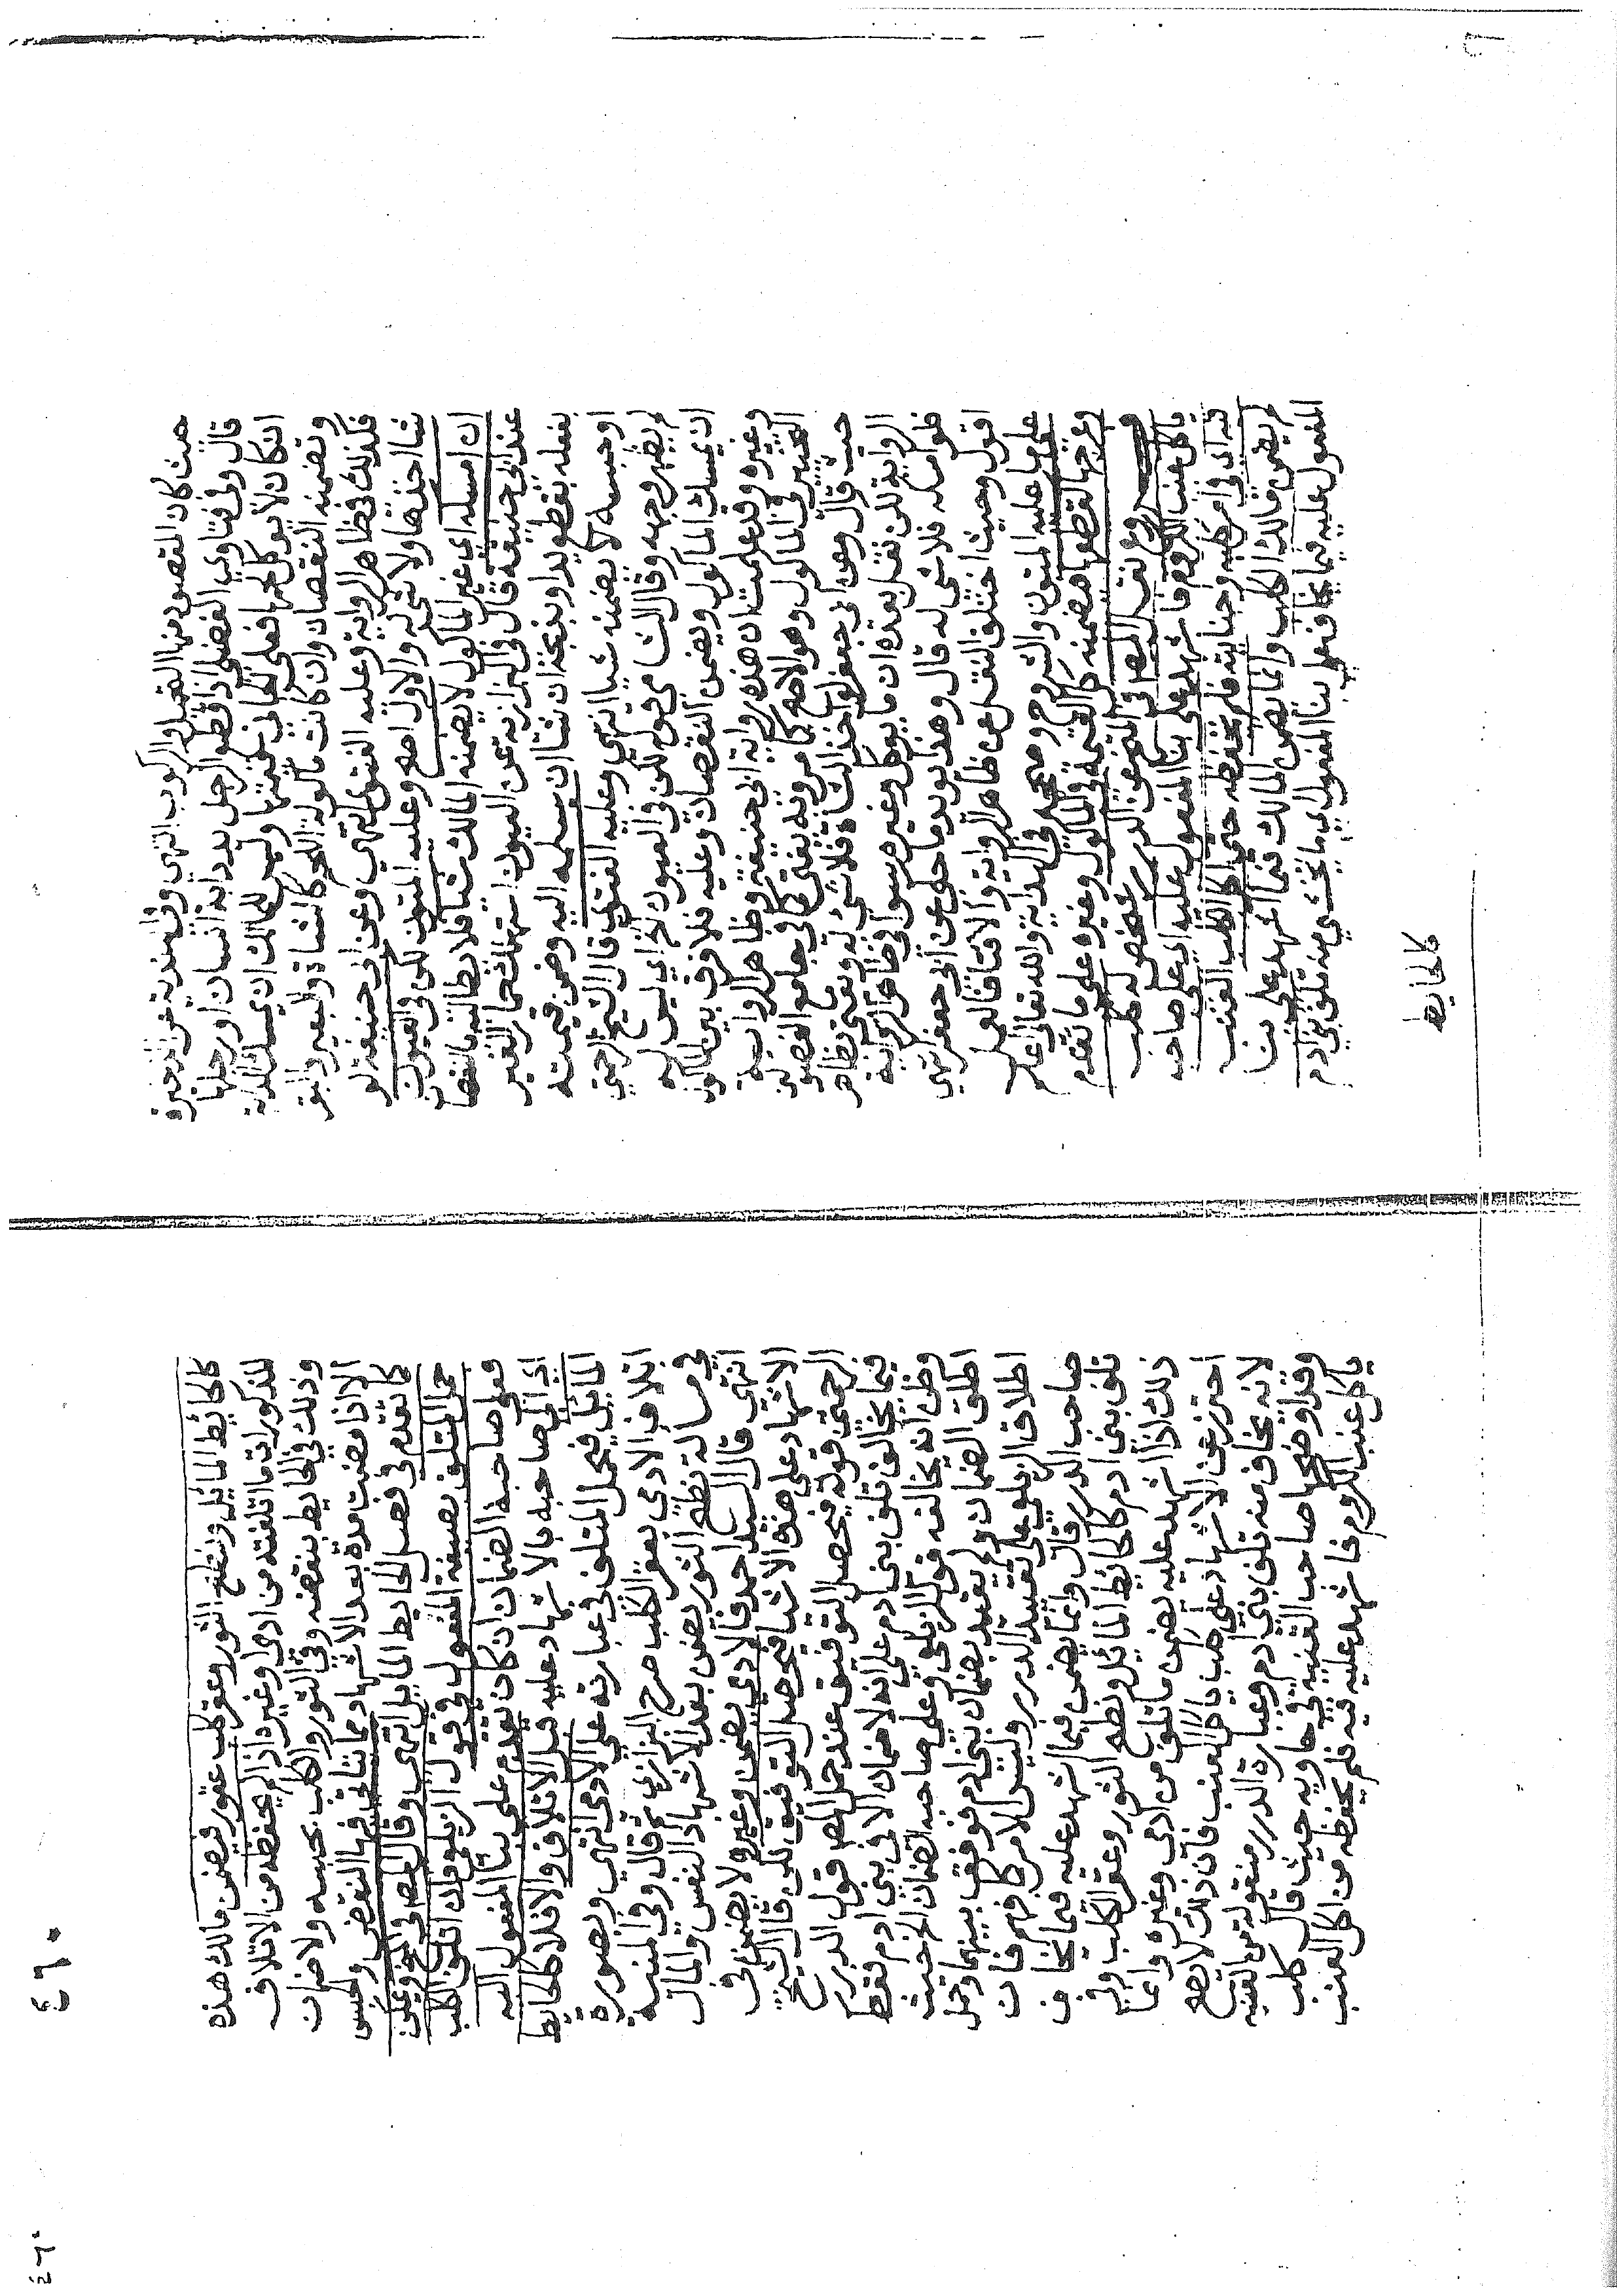 حيث كان المقصود منها الحمل والركوب انتهى وفي الهندية عن الذخيرة
قال وفي فتاوي الفضلي اذا قطع الرجل يد دابة انسان او رجلها
ان كان لا يوكل لحمها فعلى الجاني قيمتها وليس للمالك ان يمسك الدابة
ويضمنه النقصان وان كانت ماكولة اللحم كالشاة والبعير والبقر
فكذلك في ظاهر الرواية وعليه الفتوى انتهى وعن ابي حنيفة لو
شا اخذها ولا شي له والاول اصح وعليه المتون لكن في العيون
ان امسكه اي غير الماكول لا يضمنه المالك شيا فلا يطالبه بالنقصا
عند ابي حنيفة قال في البزازية عن العيون استهلك حمار الغير
بقطع يد او بذبحه ان شا ان يسلمه اليه وضمن قيمته
او حبسه لا يضمنه شيا انتهى وعليه الفتوى قال الشيخ الرحمتي
لم يظهر وجهه وقال الشامي قوله لكن في العيون الخ اي ليس له
ان يمسك الماكول ويضمن النقصان وعليه فلا فرق بين الماكول
وغيره وقد علمت ان هذه رواية ابي حنيفة وظاهر الرواية
التخيير في الماكول وهو الاصح كما مر وبه يفتى كما في جامع الفصولين
حيث قال وعن ابي جعفر لو اخذ الشاة فلا شي له ويفتى بظاهر
الرواية لكن نقل بعده ان ما يوكل وغيره سوا في ظاهر الرواية
فلو امسكه فلا شي له قال وهذا يويد ما حكي عن ابي جعفر انتهى
اقول وحيث اختلف النقل عن ظاهر الرواية والافتا فالعمل
على ما عليه المتون والشروح وصححه في الهداية والله تعالى اعلم
وعرجها كقطعها فيضمنه كل القيمة في الماكول وغيره على ما تقدم
فرع نقل المص في المنح عن الدرر شخص له كلب
ياكل عنب الكروم فاشهد على بنا المفعول عليه اي على صاحبه
فيه اي في امر كلبه وجنايته فلم يحفظه حتى اكل الكلب العنب
لم يضمن مالك الكلب وانما يضمن المالك فيما اشهد على بنا
المفعول عليه فيما يخاف على بنا المفعول اي ما يخشي منه تلف بني ادم
كالحايط
٤٦٠
كالحائط المائل ونطح الثور وعقر كلب عقور فيضمن مالك هذه
المذكورات ما اتلفته من ادمي او غيره اذا لم يحفظه من الاتلاف
وذلك في الحايط بنقضه وفي الثور والكلب بحبسه ولا ضمان
الا اذا مضت مدة بعد الاشهاد مما يتاتى فيها النقض والحبس
كما تقدم في فصل الحايط المايل انتهى وقال المص في المنح ويمكن
حمل المتلف بصيغة المفعول في قول الزيلعي وان اتلف الكلب
فعلى صاحبه الضمان ان كان تقدم على بنا المفعول اليه
اي الى صاحبه بالاشهاد عليه قبل الاتلاف والا فلا كالحايط
المائل فيحمل المتلف في عبارته على الادمي انتهى وبصورة
اتلاف الادمي بعقر الكلب صرح البزازي قال وفي المنية
في مسالة نطح الثور يضمن بعد الاشهاد النفس والمال
انتهى قال السيد احمد فالادمي يضمن وغيره لا يضمن في
الاشهاد على هذه الاشيا فيحصل التوفيق لكن قال الشيخ
الرحمتي قوله فيحصل التوفيق عند حمل المص قول الدرر
فيما يخاف تلف بني ادم على انه لا ضمان الا في بني ادم فقط
وظن انه يخالفه قول الزيلعي وعلى صاحبه الضمان الخ حيث
اطلق الضمان ولم يقيد بضمان بني ادم فوفق بينهما وحمل
اطلاق الزيلعي على تقييد الدرر وليس الامر كما فهم فان
صاحب الدرر قال وانما يضمن فيما اشهد عليه فيما يخاف
تلف بني ادم كالحائط المائل ونطح الثور وعقر الكلب وفي
ذلك اذا اشهد عليه يضمن ما تلف من ادمي وغيره وانما
احترز عن الاشهاد على كلب ياكل العنب فان ذلك لا يصح
لانه يخاف منه تلف بني ادم وعبارة الدرر منقولة من القنيه
وقد اوضحها صاحب القنيه في حاويه حيث قال كلب
ياكل عنب الكروم فاشهد عليه فيه فلم يحفظه من اكل العنب
٤٦٠